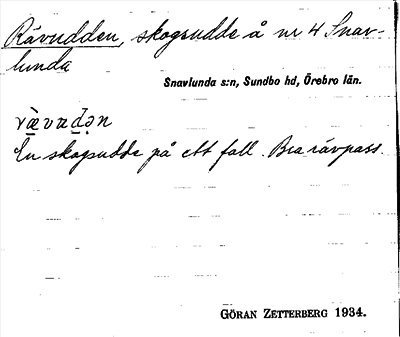 Rävudden, skogsudde å nr 4 Snav-
lunda
Snavlunda s:n, Sundbo hd, Örebro län.
En skogsudde på ett fall. Bra rävpass.
GÖRAN ZETTERBERG 1934.